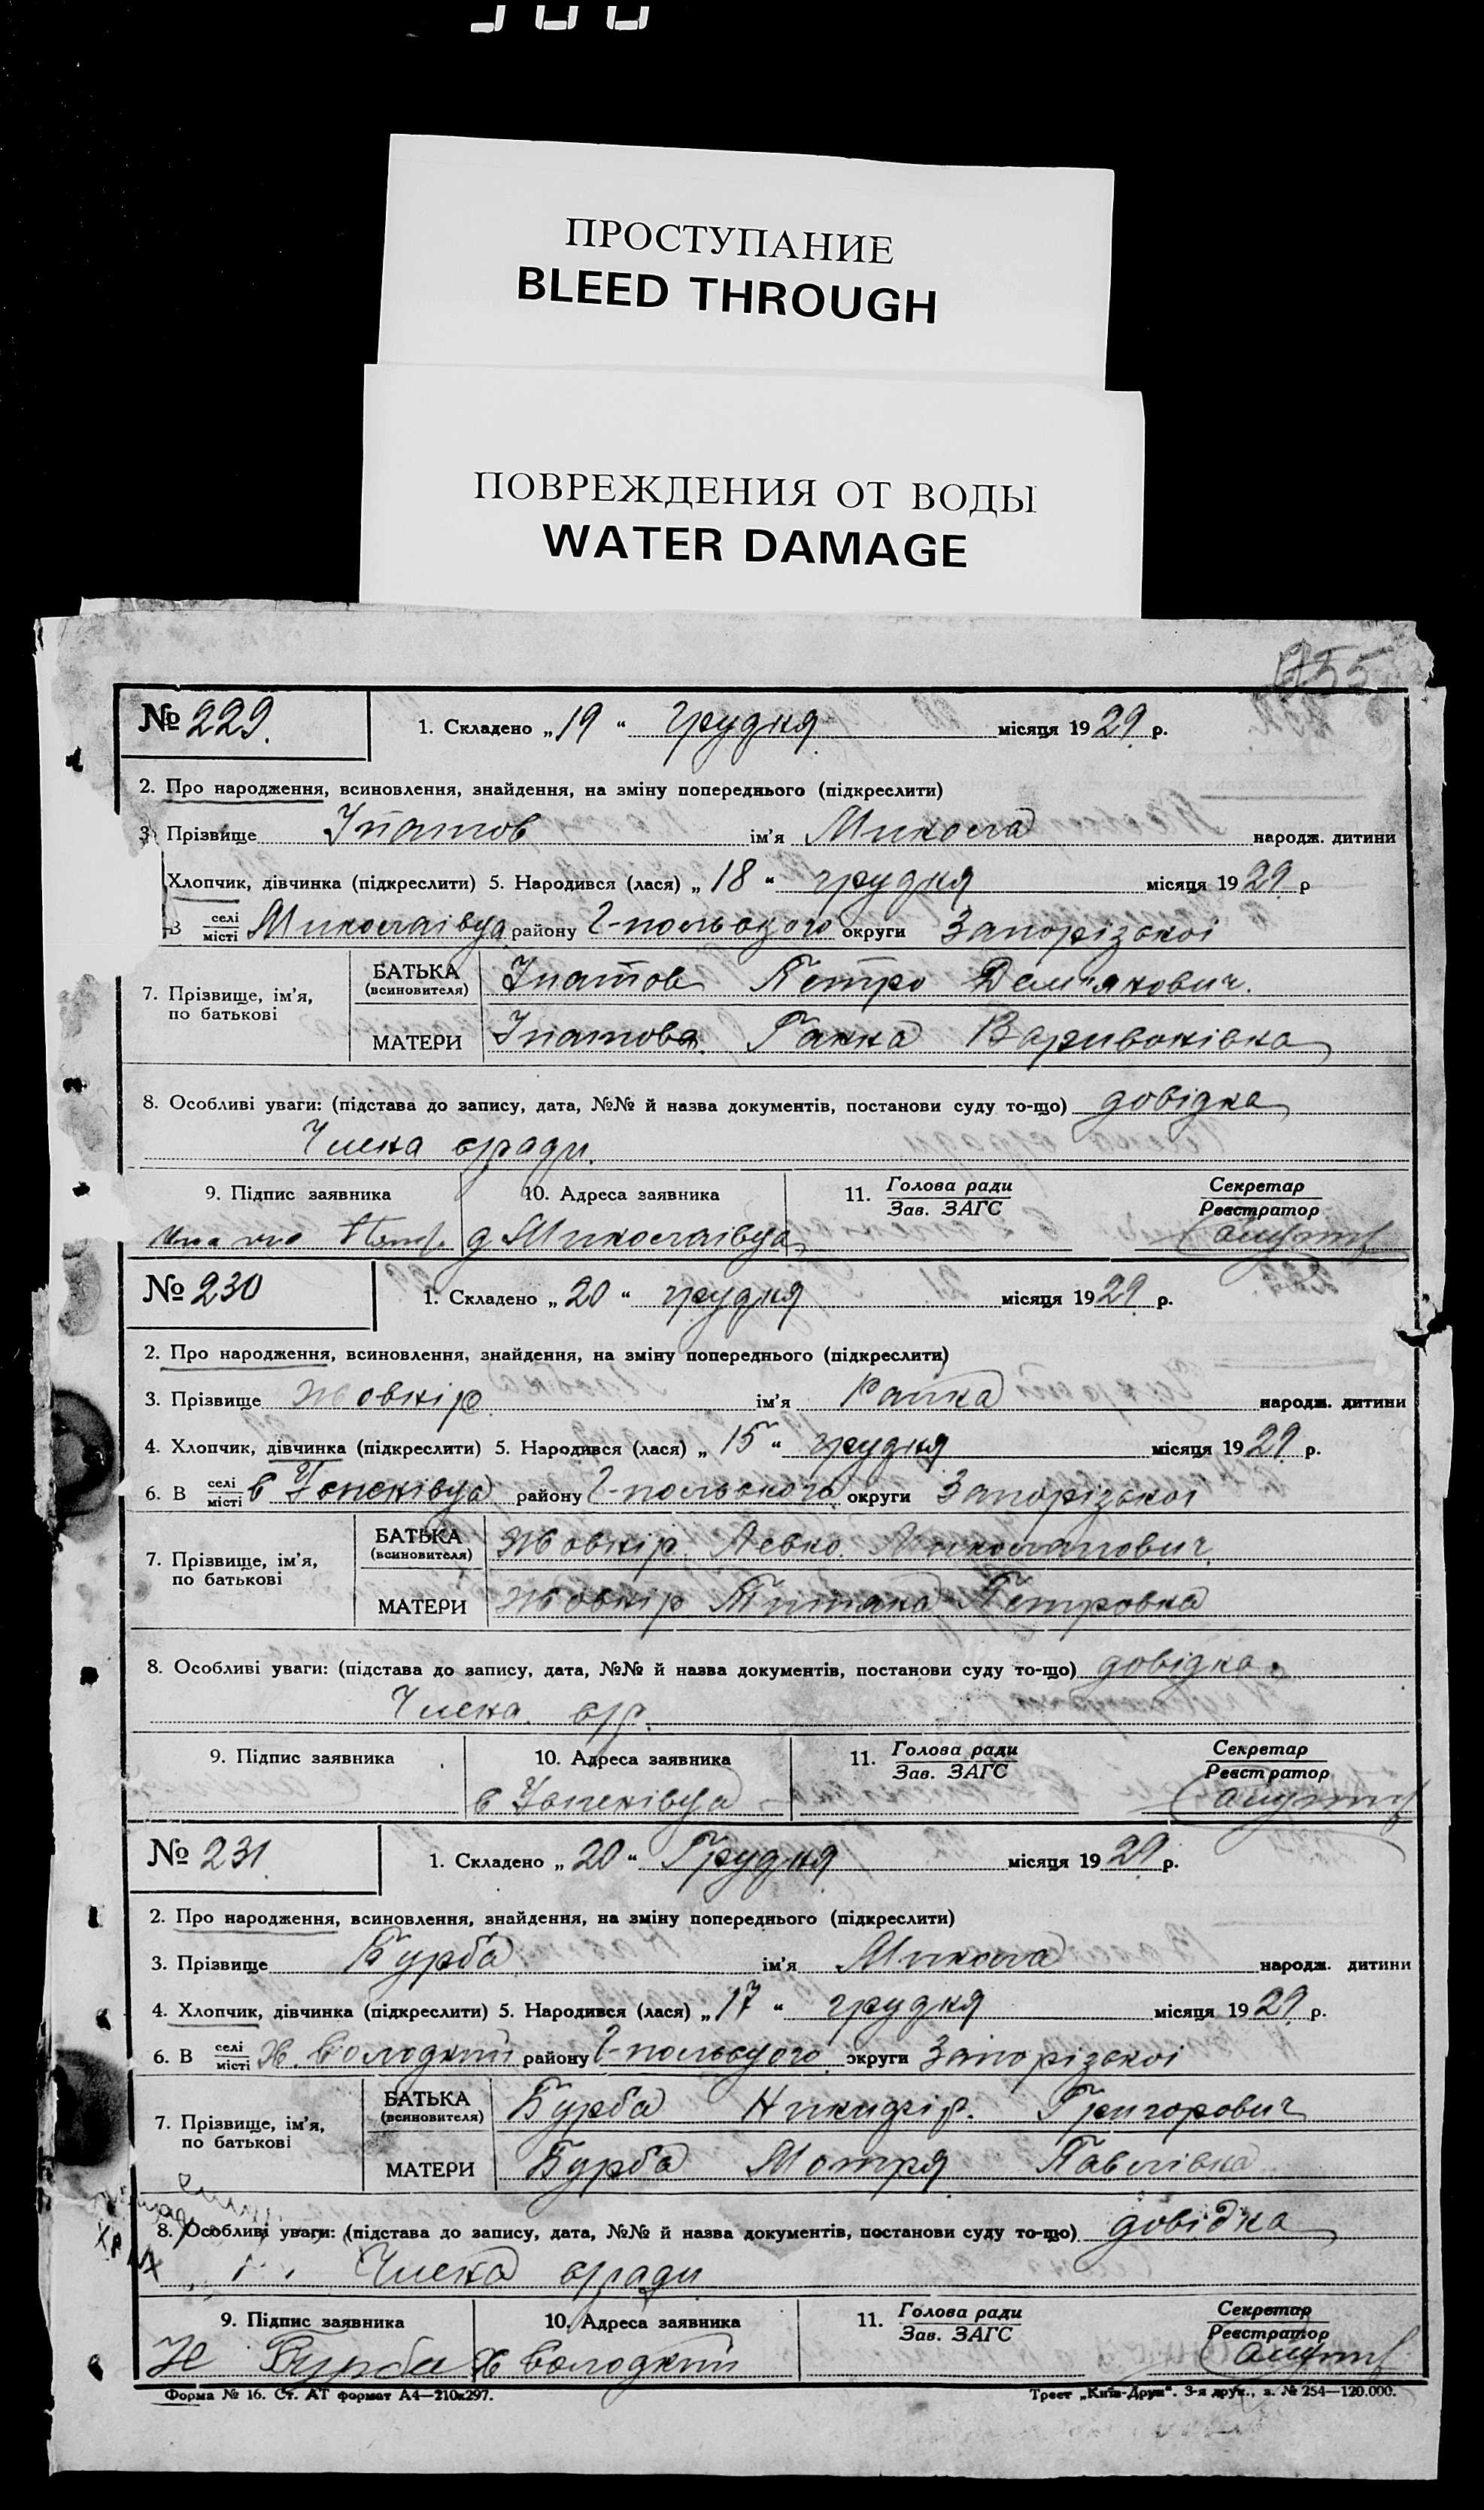 ПРОСТУПАНИЕ
BLEED THROUGH
ПОВРЕЖДЕНИЯ ОТ ВОДЫ
WATER DAMAGE
255
№ 229. 1. Складено „19“ грудня місяця 1929 р.
2. Про народження, всиновлення, знайдення, на зміну попереднього (підкреслити)
3 Прізвище Іпатов ім'я Микола народж. дитини
Хлопчик, дівчинка (підкреслити) 5. Народився (лася) „18“ грудня місяця 1929 р
В селі місті Миколаівца району Г-польского округи Запорізькоі
7. Прізвище, ім'я, по батькові
БАТЬКА (всиновителя) Іпатов Петро Дем"янович.
МАТЕРИ Іпатова Ганна Варивонівна
8. Особливі уваги: (підстава до запису, дата, №№ й назва документів, постанови суду то-що) довідка
Члена с/ради.
9. Підпис заявника 10. Адреса заявника 11. Голова ради Зав. ЗАГС Секретар Реєстратор
Миколаівца
№ 230 1. Складено „20“ грудня місяця 1929 р.
2. Про народження, всиновлення, знайдення, на зміну попереднього (підкреслити)
3. Прізвище Жовнір ім'я Ганна народж. дитини
4. Хлопчик, дівчинка (підкреслити) 5. Народився (лася) „15“ грудня місяця 1929 р.
6. В селі місті району Г-польського округи Запорізькоі
7. Прізвище, ім'я, по батькові
БАТЬКА (всиновителя) Жовнір. Левко.
МАТЕРИ Жовнір Петровна
8. Особливі уваги: (підстава до запису, дата, №№ й назва документів, постанови суду то-що) довідка.
Члена. с/р.
9. Підпис заявника 10. Адреса заявника 11. Голова ради Зав. ЗАГС Секретар Реєстратор
№ 231. 1. Складено „20“ Грудня місяця 1929 р.
2. Про народження, всиновлення, знайдення, на зміну попереднього (підкреслити)
3. Прізвище Бурба ім'я Микола народж. дитини
4. Хлопчик, дівчинка (підкреслити) 5. Народився (лася) „17“ грудня місяця 1929 р.
6. В селі місті Х. Володкий району Г-польсього округи Запорізькоі
7. Прізвище, ім'я, по батькові
БАТЬКА (всиновителя) Бурба Никифір. Григорович
МАТЕРИ Бурба Мотря Павлівна
8. Особливі уваги: (підстава до запису, дата, №№ й назва документів, постанови суду то-що) довідка
Члена с/ради
9. Підпис заявника 10. Адреса заявника 11. Голова ради Зав. ЗАГС Секретар Реєстратор
Н Бурба Х Володкий
Форма № 16. Ст. АТ формат А4—210х297. Трест „Київ-Друк“. 3-я друк., з. № 254—120.000.